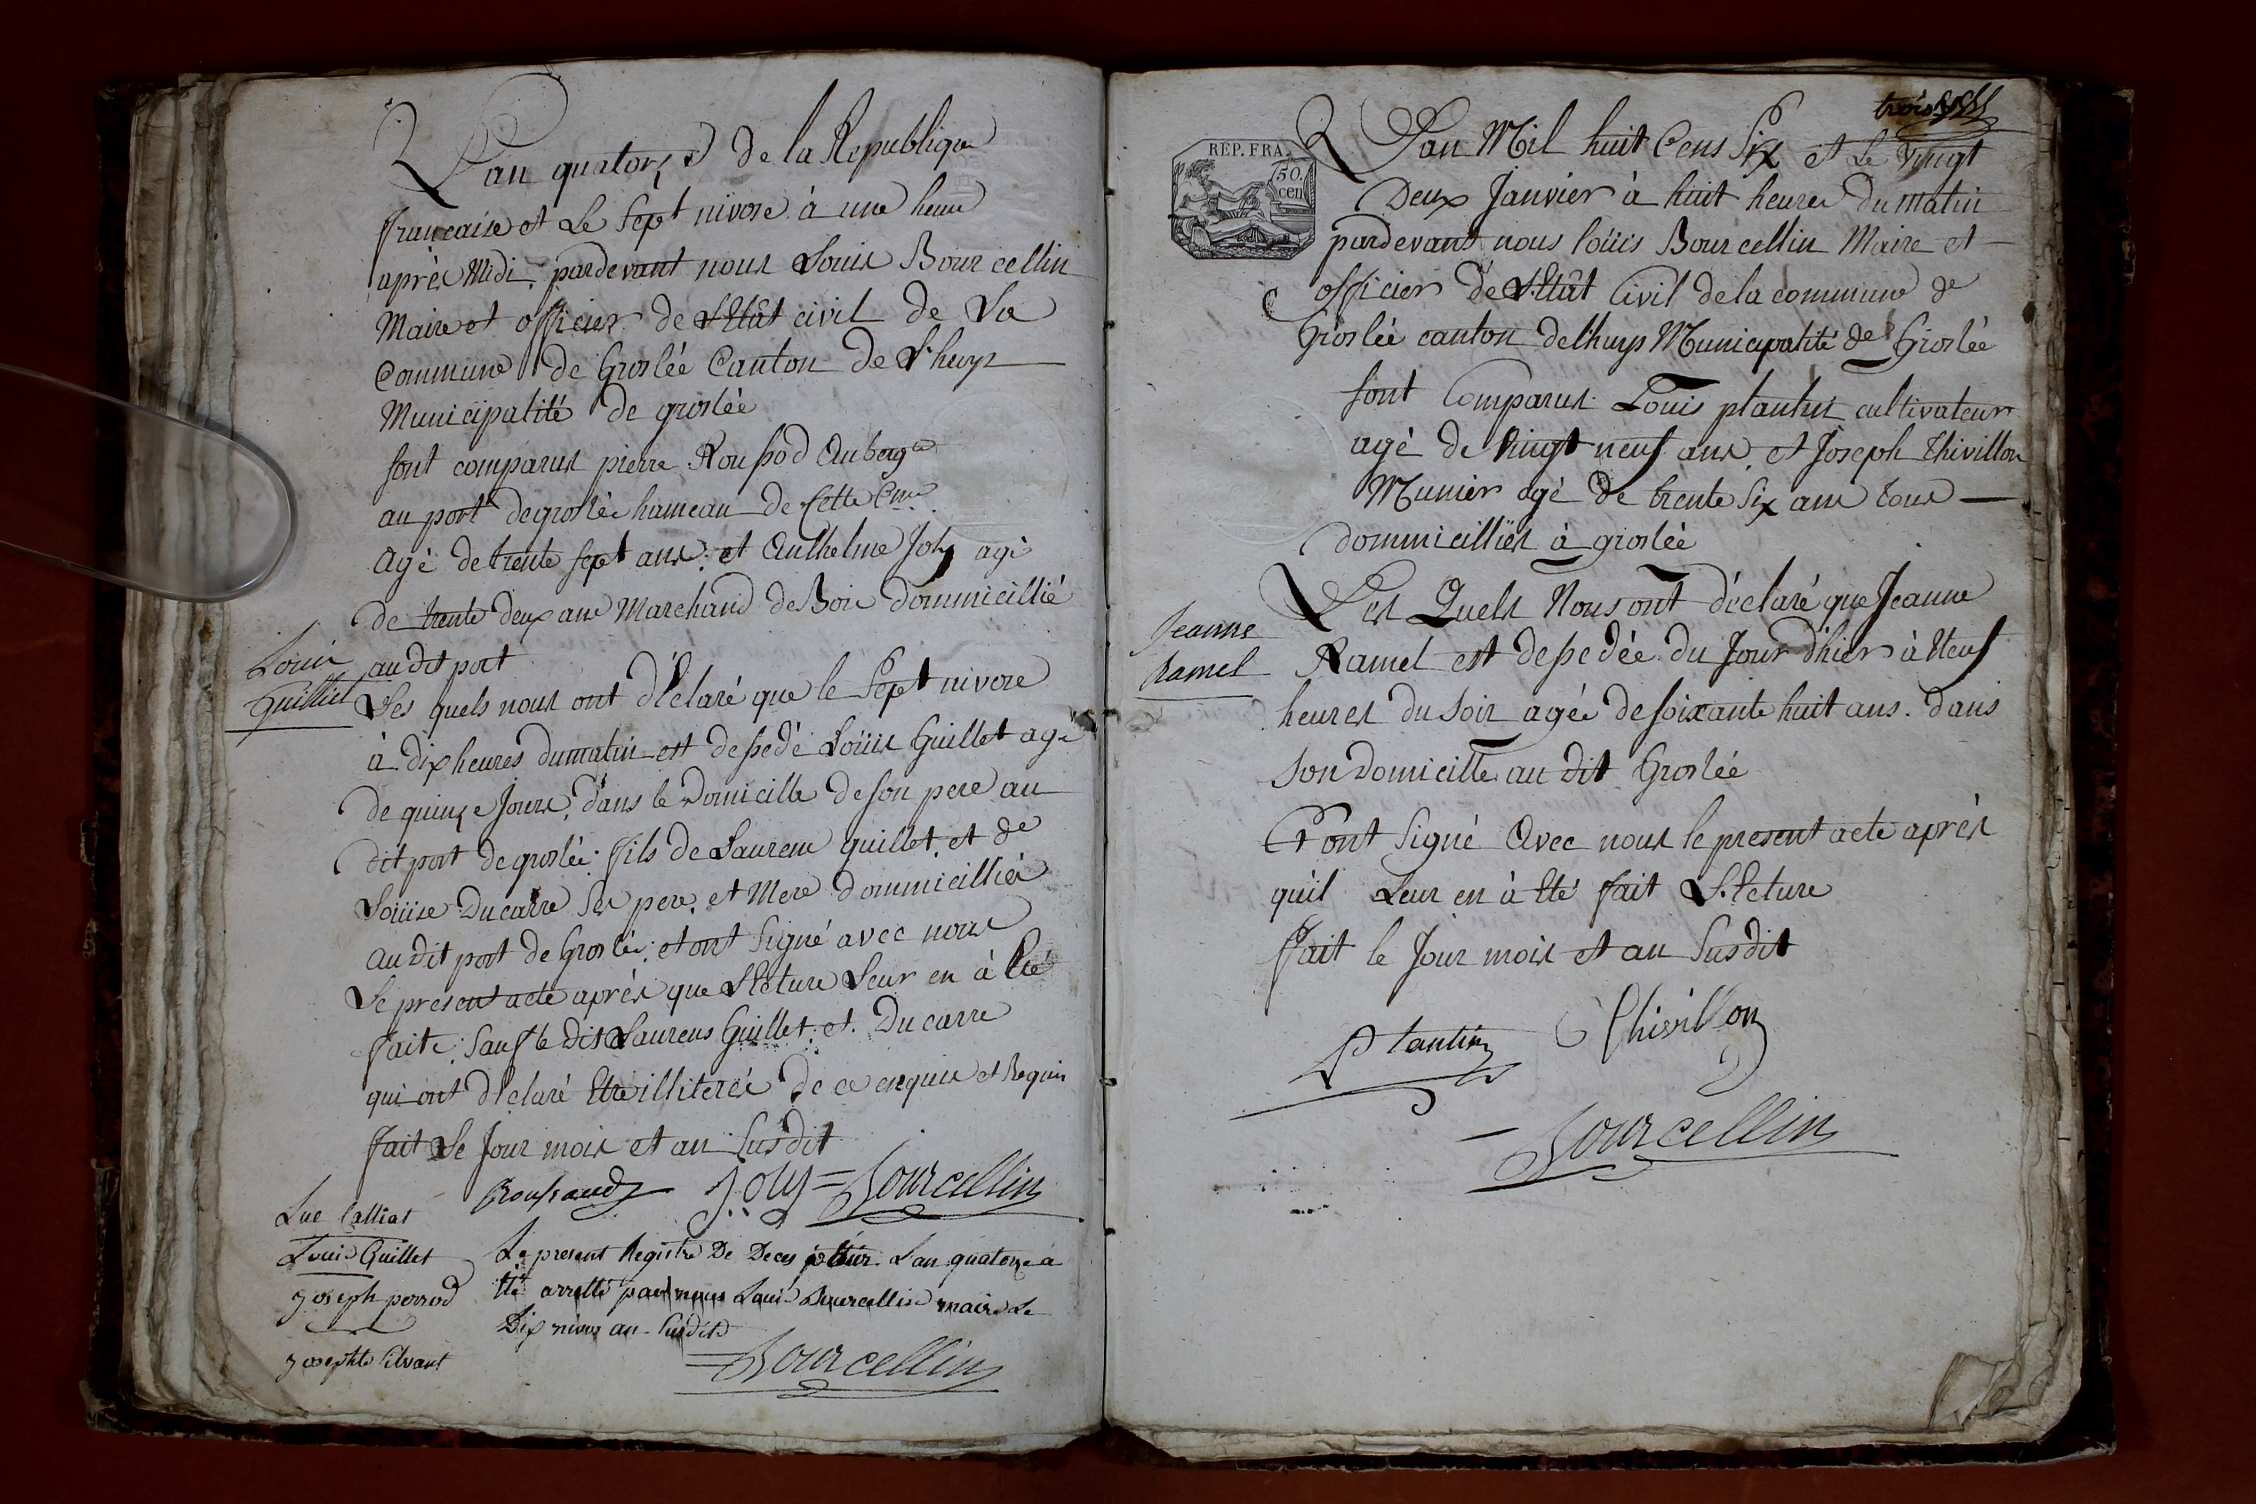 L'an quatorze de la Republique
francaise et Le Sept nivose à une heure
après Midi, pardevant nous Louis Bourcellin
Maire et officier de L'Etât civil de La
Commune de Groslée Canton de Lhuys
Municipalité de groslée
sont comparus pierre Roussod Auberg.te
au port de groslée hameau de Cette Cmne
Agé de trente sept ans, et Anthelme Joly agé
de trente deux ans Marchand de Bois dommicillié
au dit port
Louis
Guilliet
Les quels nous ont déclaré que le Sept nivose
à dix heures du matin est dessedé Loüis Guillet agé
de quinze Jours, dans le Domicille de son pere au
dit port de groslée. fils de Laurens Guillet, et de
Loüise Ducarre Ses pere, et Mere dommicilliés
au dit port de Groslée, et ont Signé avec nous
Le present acte après que Lecture Leur en à Eté
faite, Sauf le dit Laurens Guillet, et Ducarre
qui ont déclaré Etre illiterés de ce enquis et Requis
fait Le Jour mois et an Susdit
Roussaud Joly Bourcellin
Luc Calliat
Louis Guillet
Joseph perrod
Josephte Silvant
Le present Registre De Deces pour L'an quatorze a
Eté arretté par nous Louis Bourcellin maire Le
Dix nivos an Susdit
Bourcellin
trois
REP. FRA.
50.
cen
L'an Mil huit Cens Six et Le Vingt
Deux Janvier à huit heures du matin
pardevant nous loüis Bourcellin Maire et
officier de L'Etât Civil de la commune de
Groslée canton de Lhuys Municipalité de Groslée
sont Comparus Louis plantin cultivateur
agé de Vingt neuf ans, et Joseph Thivillon
Munier agé de trente Six ans tous
dommicilliés à groslée
Jeanne
Ramel
Les Quels Nous ont déclaré que Jeanne
Ramel est dessedée du Jour d'hier à Neuf
heures du Soir agée de soixante huit ans. dans
son Domicille au dit Groslée
Et ont Signé Avec nous le present acte après
qu'il Leur en à Eté fait Lecture
fait le Jour mois et an Susdit
Plantin Thivillon
Bourcellin